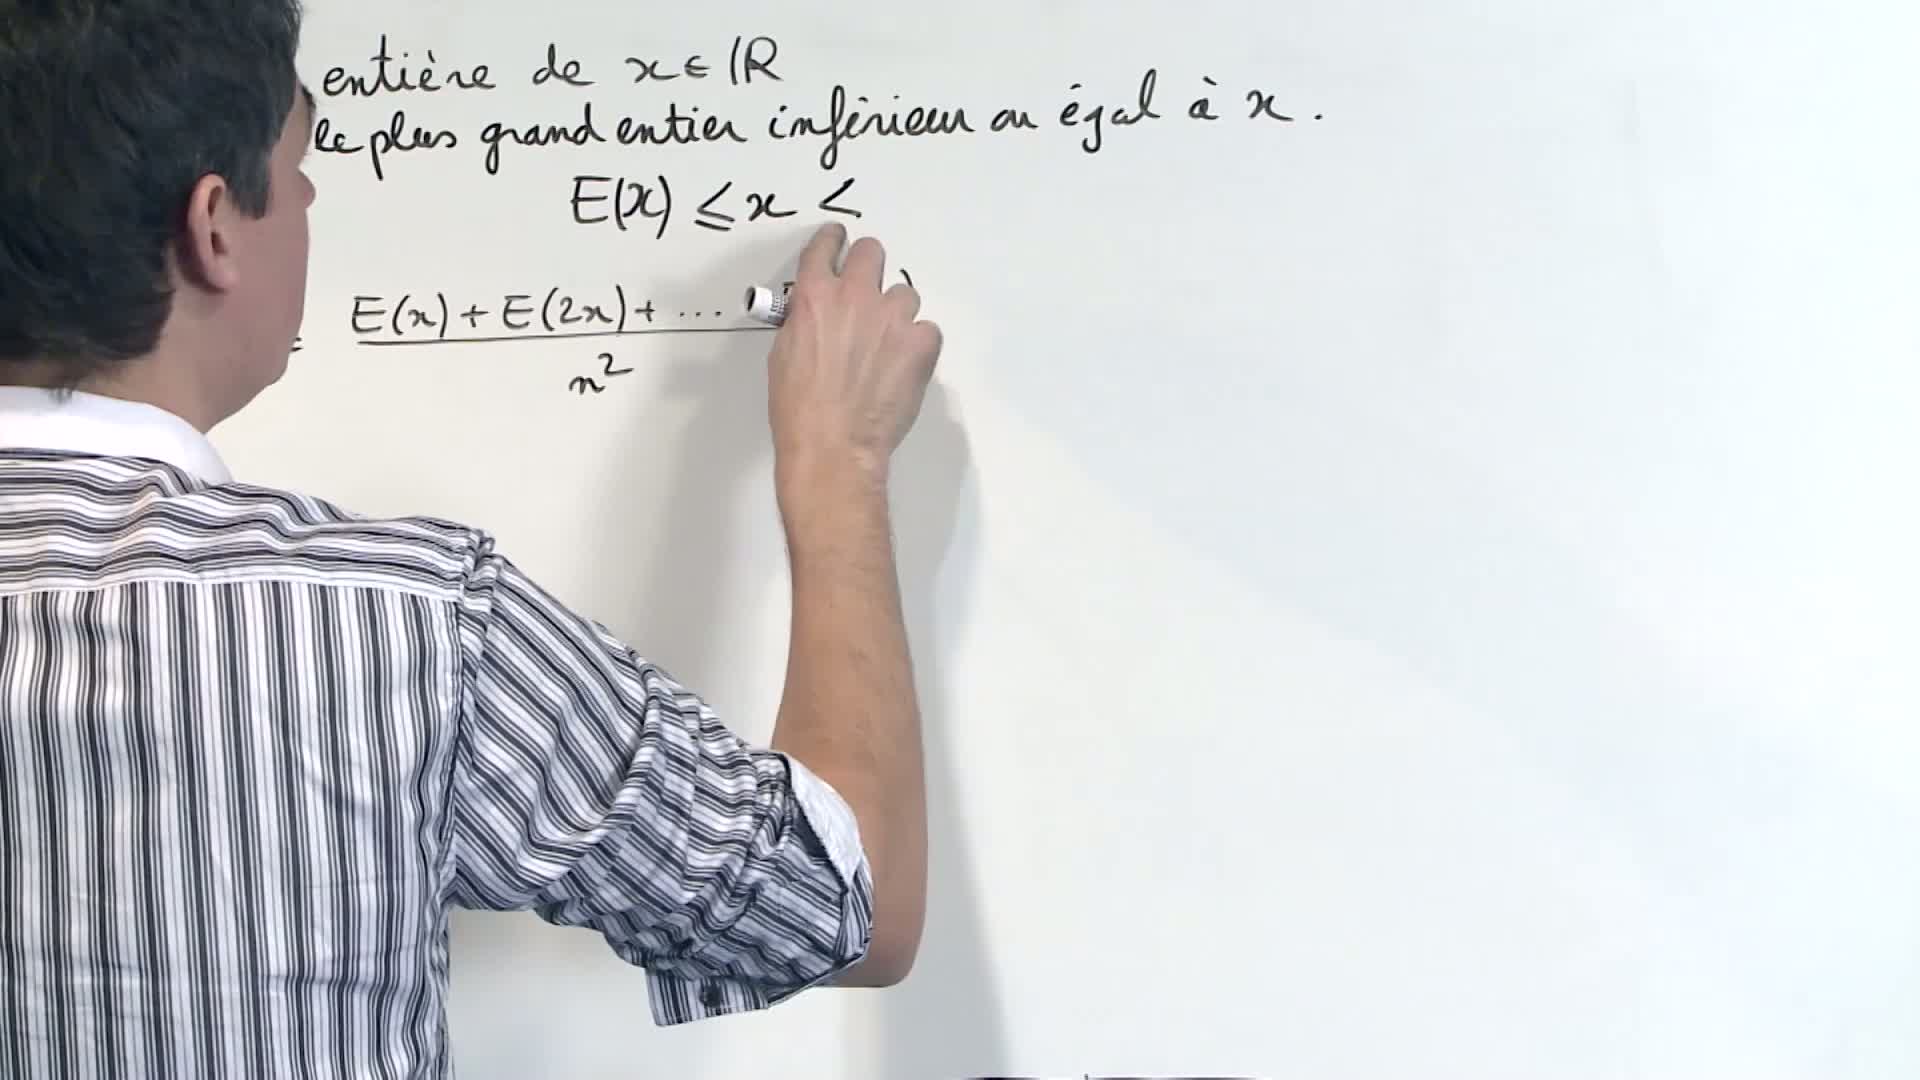 entière de x ∈ ℝ
le plus grand entier inférieur ou égal à x.
E(x) ≤ x <
= E(x) + E(2x) + ...
n²